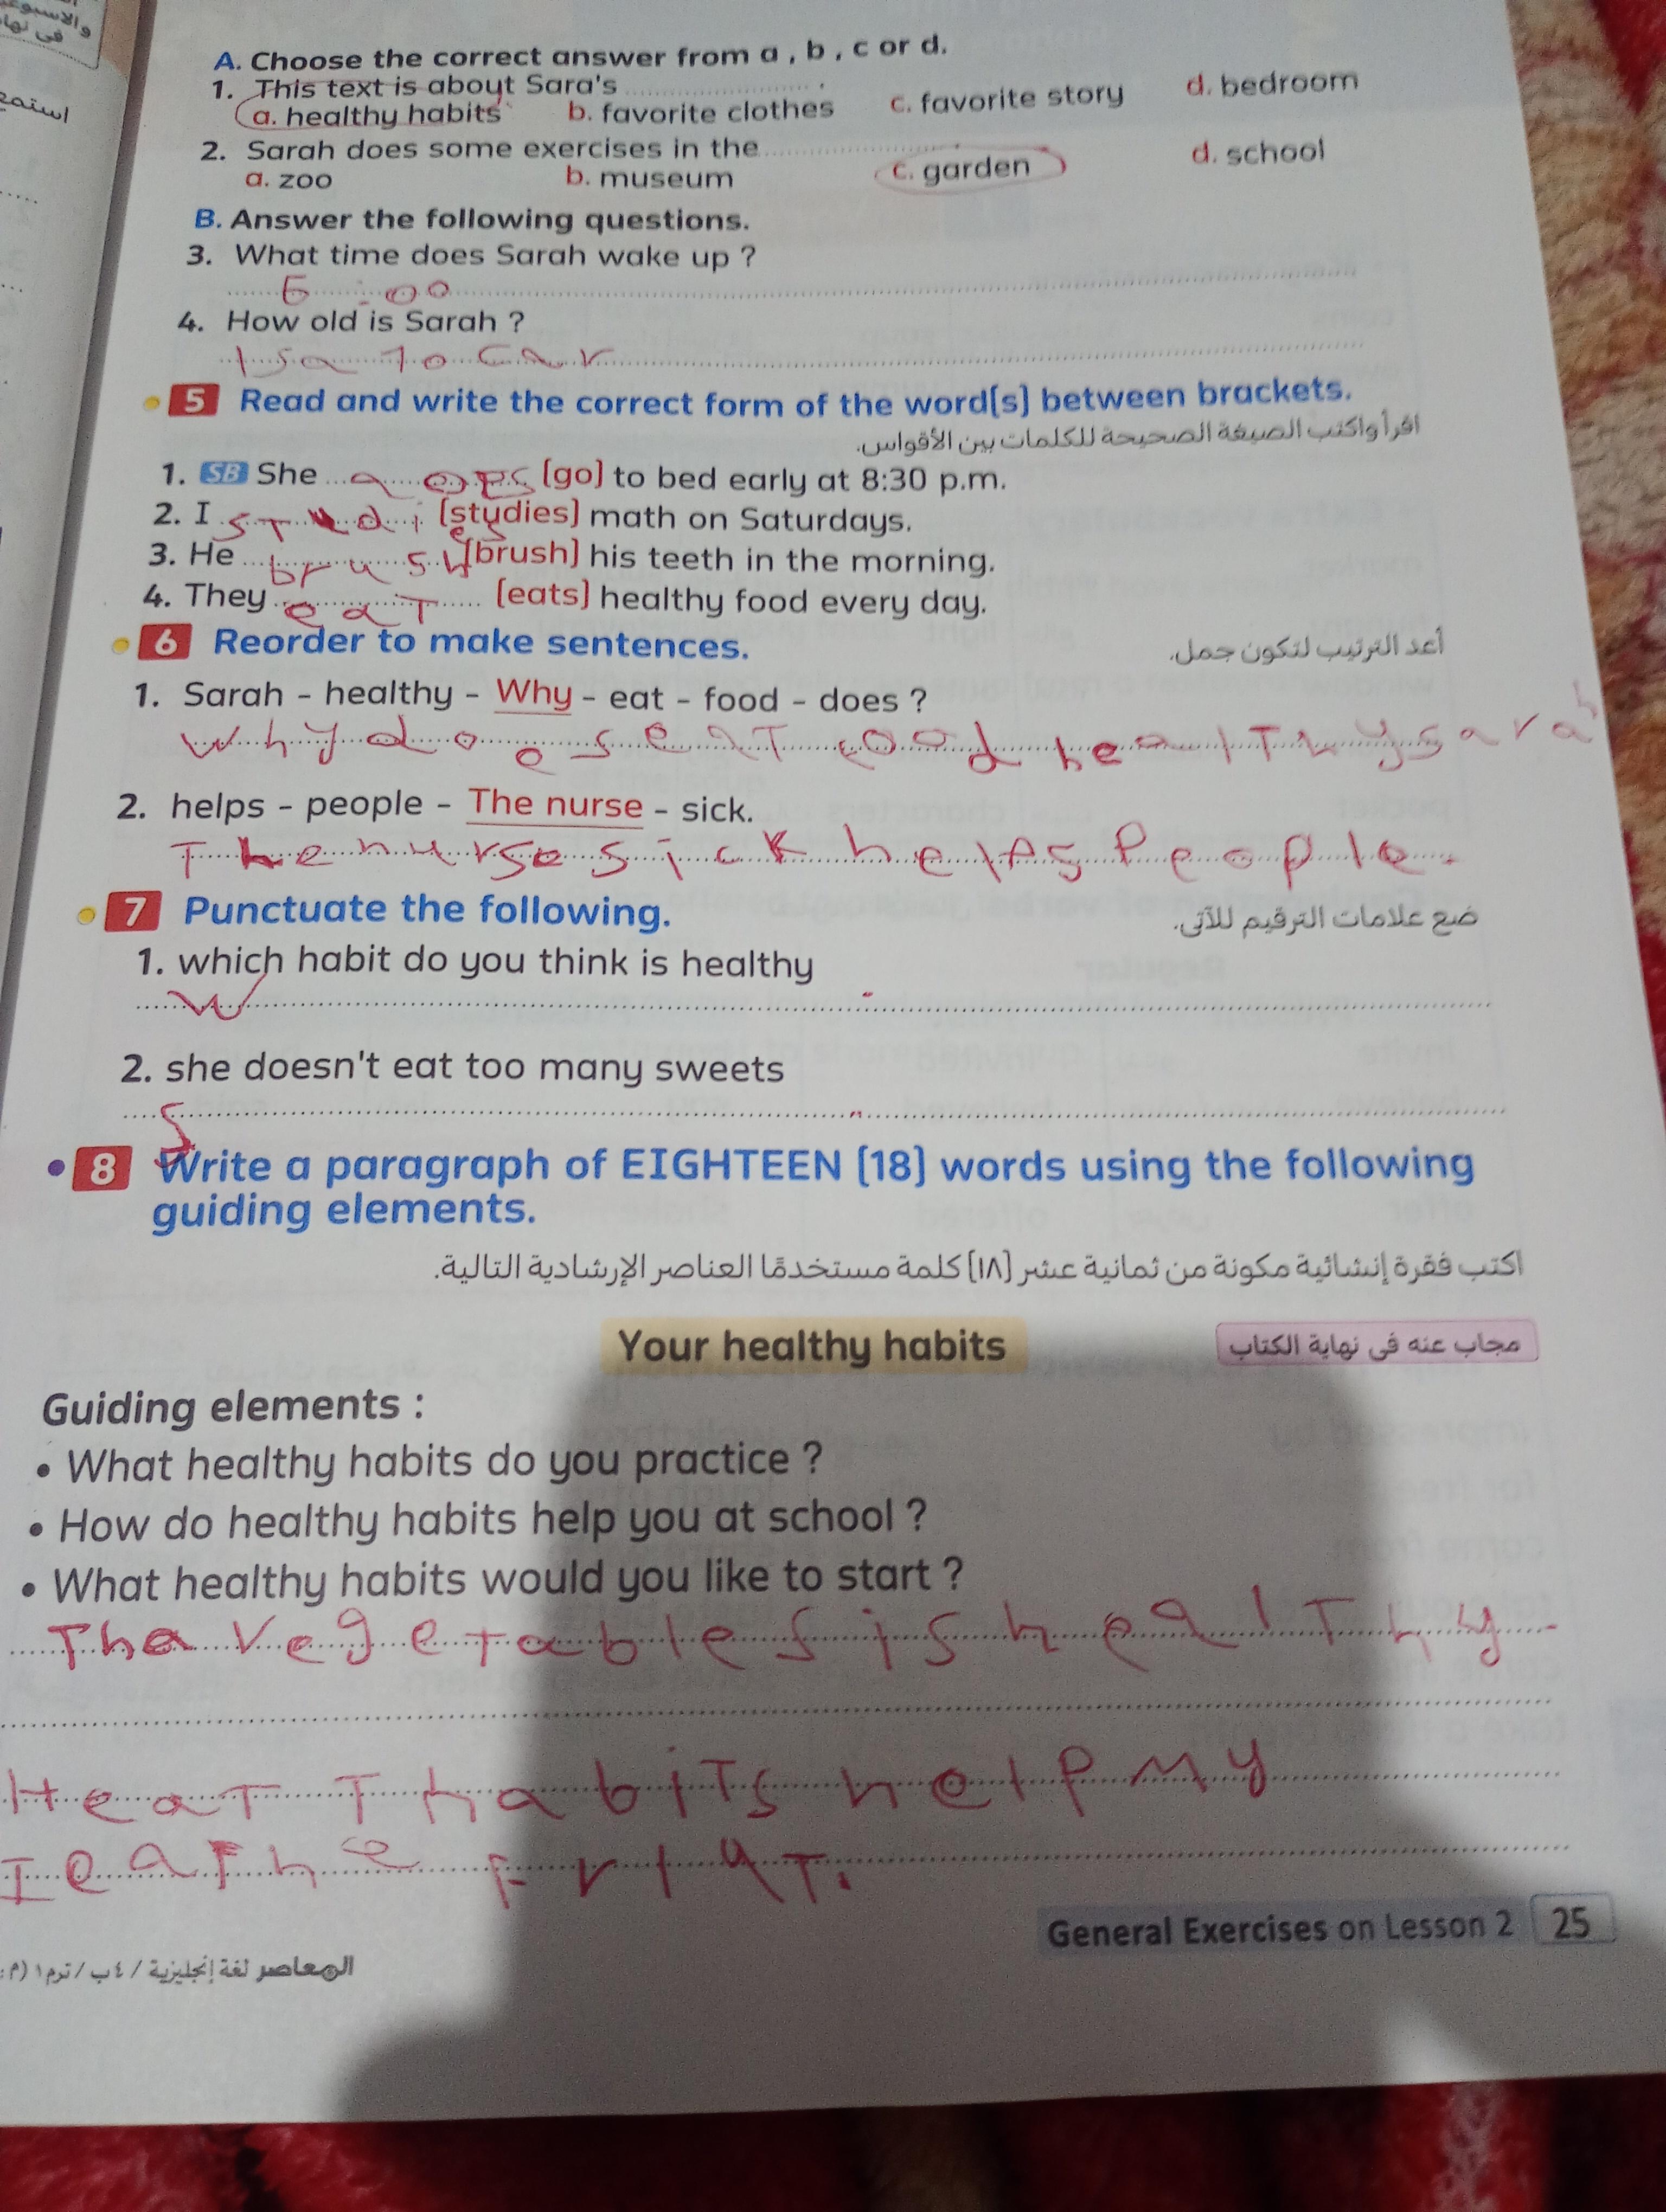 A. Choose the correct answer from a , b , c or d.
1. This text is about Sara's ........................ .
a. healthy habits b. favorite clothes c. favorite story d. bedroom
2. Sarah does some exercises in the ........................ .
a. zoo b. museum c. garden d. school
B. Answer the following questions.
3. What time does Sarah wake up ?
6 : 00
4. How old is Sarah ?
5 Read and write the correct form of the word(s) between brackets.
اقرأ واكتب الصيغة الصحيحة للكلمات بين الأقواس.
1. SB She ........ (go) to bed early at 8:30 p.m.
2. I studi (studies) math on Saturdays.
es
3. He brush (brush) his teeth in the morning.
4. They eat (eats) healthy food every day.
6 Reorder to make sentences.
أعد الترتيب لتكون جمل.
1. Sarah - healthy - Why - eat - food - does ?
Why does eat food healthy sarah
2. helps - people - The nurse - sick.
The nurse sick helps People.
7 Punctuate the following.
ضع علامات الترقيم للآتى.
1. which habit do you think is healthy
W .
2. she doesn't eat too many sweets
S .
8 Write a paragraph of EIGHTEEN (18) words using the following
guiding elements.
اكتب فقرة إنشائية مكونة من ثمانية عشر (١٨) كلمة مستخدمًا العناصر الإرشادية التالية.
Your healthy habits
مجاب عنه فى نهاية الكتاب
Guiding elements :
• What healthy habits do you practice ?
• How do healthy habits help you at school ?
• What healthy habits would you like to start ?
Tha Vegetables is healthy.
Heat Thabits help My
General Exercises on Lesson 2 25
المعاصر لغة إنجليزية / ٤ ب / ترم ١ (م :